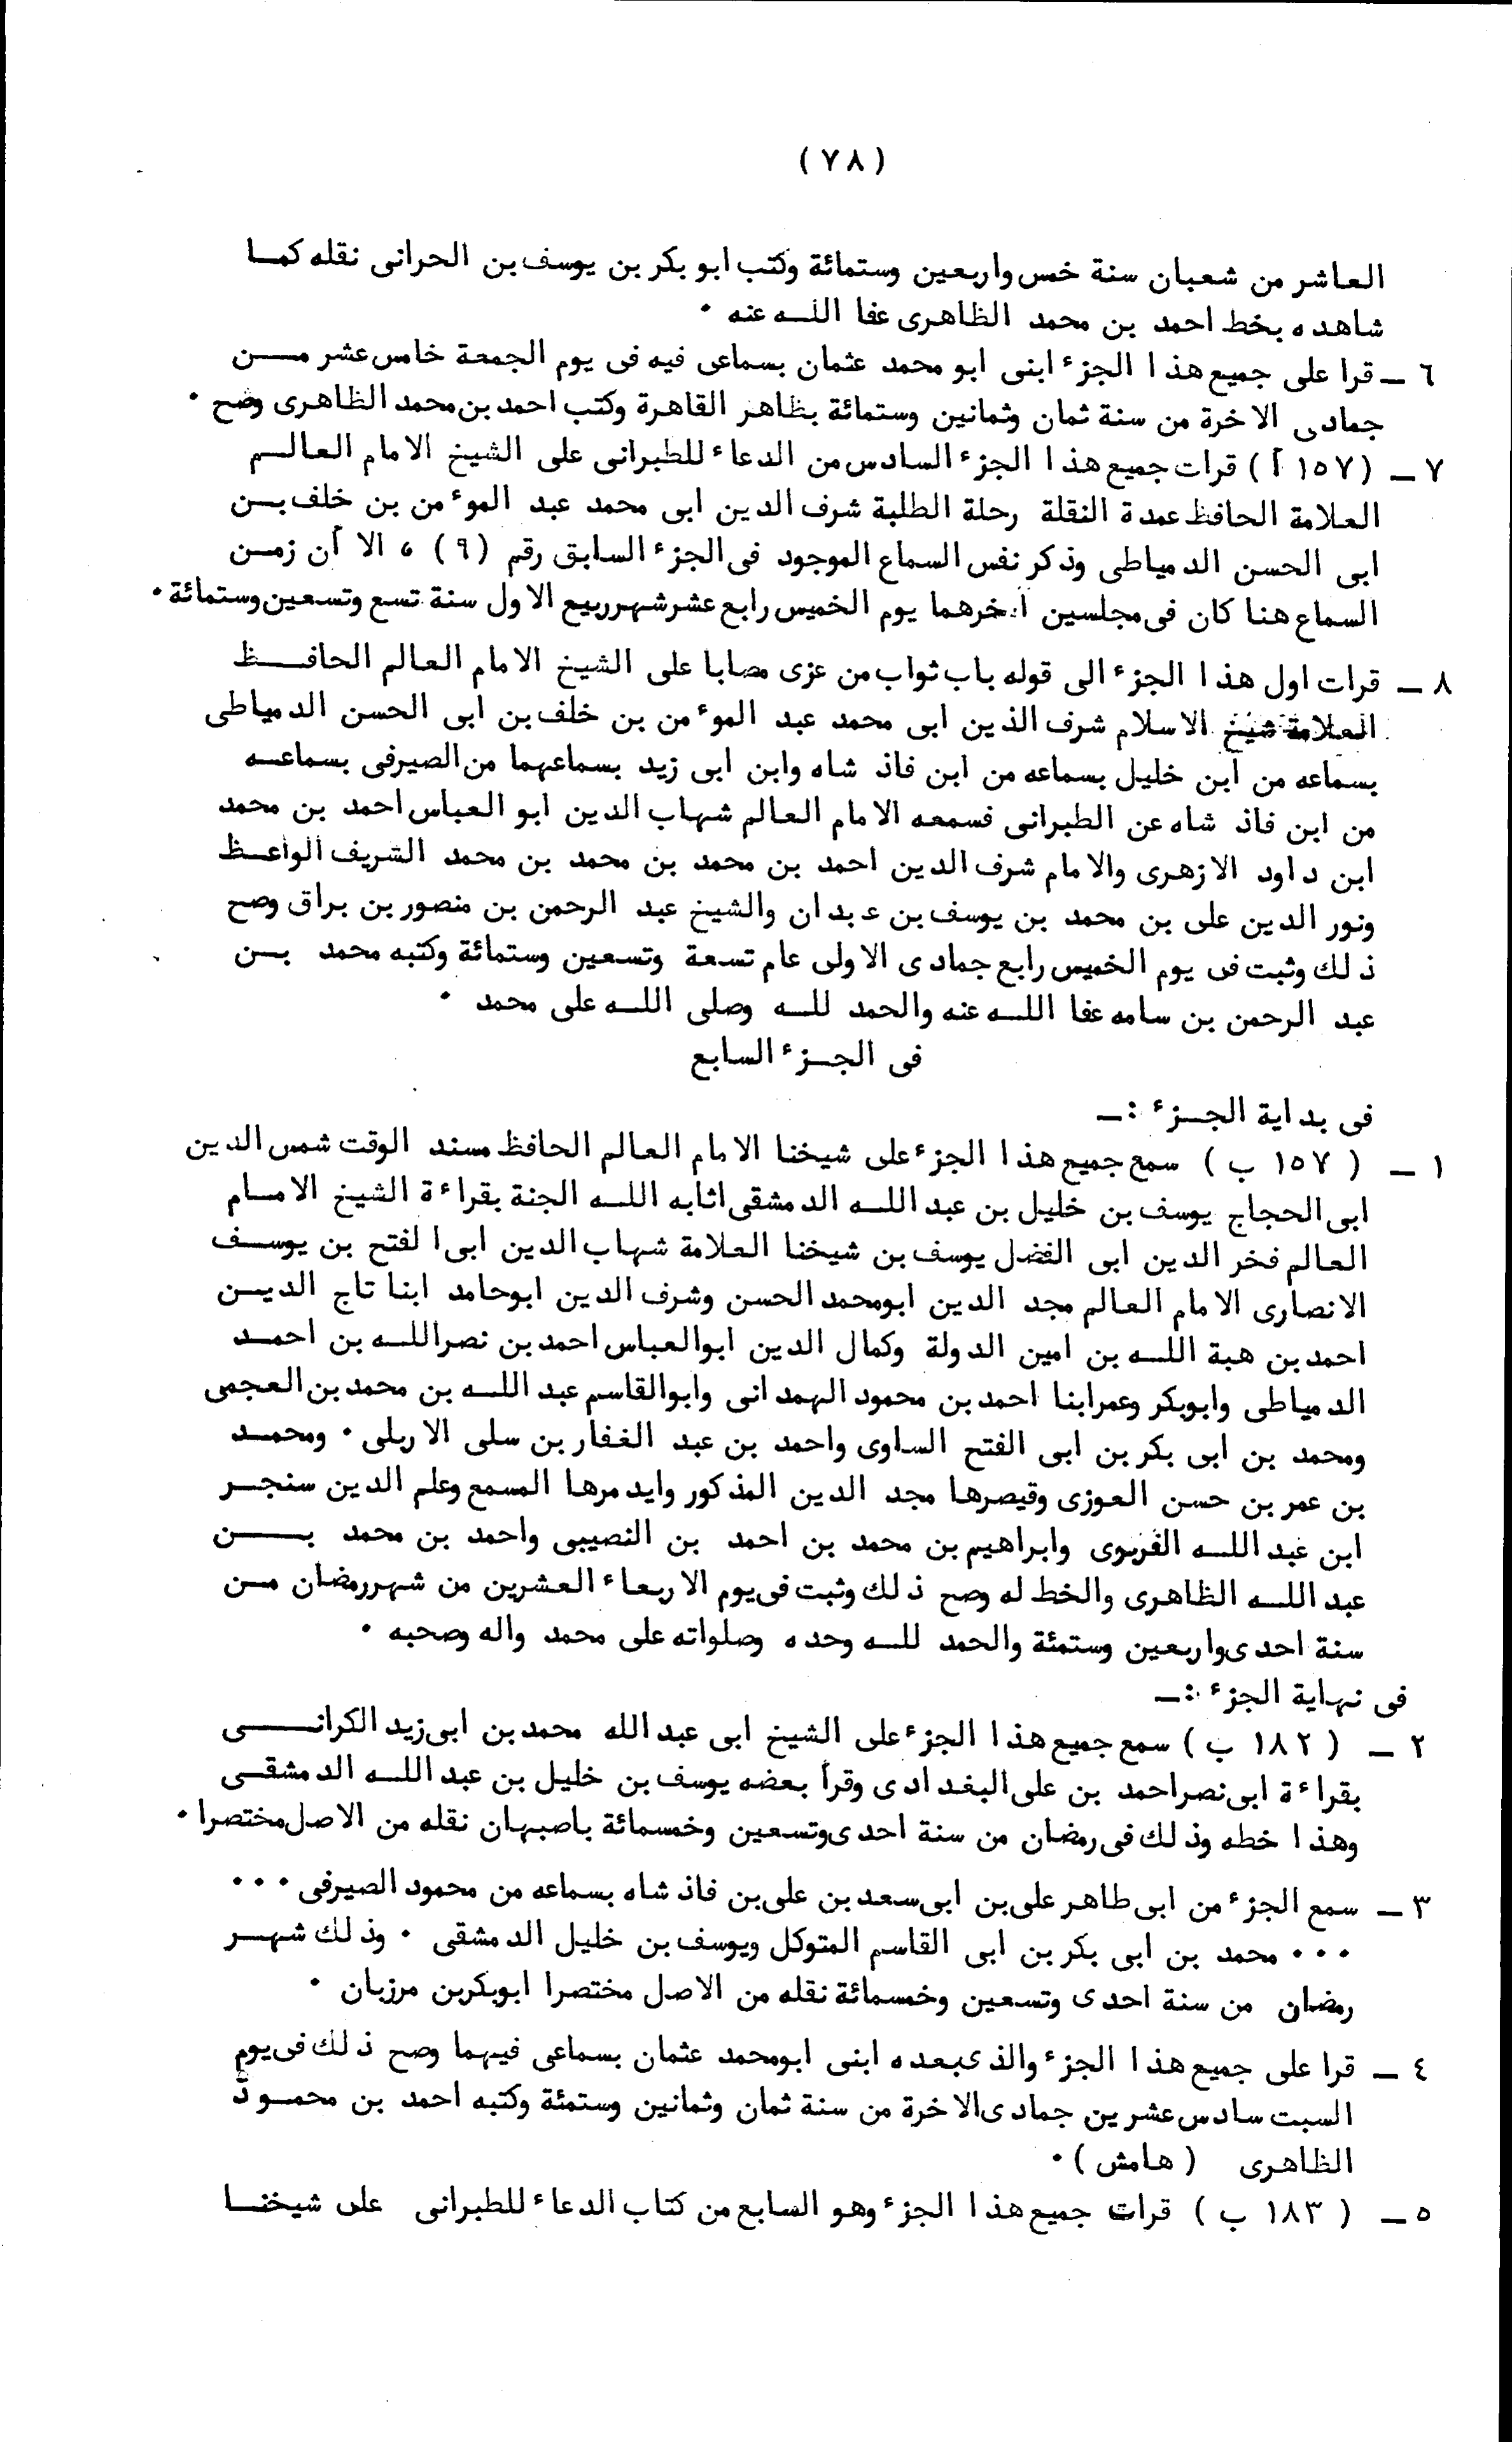 (٧٨)
العاشر من شعبان سنة خمس واربعين وستمائة وكتب ابو بكر بن يوسف بن الحرانى نقله كما
شاهده بخط احمد بن محمد الظاهرى عفا الله عنه ٠
٦ ـ قرا على جميع هذا الجزء ابنى ابو محمد عثمان بسماعى فيه فى يوم الجمعة خامس عشر من
جمادى الاخرة من سنة ثمان وثمانين وستمائة بظاهر القاهرة وكتب احمد بن محمد الظاهرى وصح ٠
٧ ـ (١٥٧ أ) قرات جميع هذا الجزء السادس من الدعاء للطبرانى على الشيخ الامام العالم
العلامة الحافظ عمدة النقلة رحلة الطلبة شرف الدين ابى محمد عبد الموءمن بن خلف بن
ابى الحسن الدمياطى وذكر نفس السماع الموجود فى الجزء السابق رقم (٩) ، الا أن زمن
السماع هنا كان فى مجلسين آخرهما يوم الخميس رابع عشر شهر ربيع الاول سنة تسع وتسعين وستمائة ٠
٨ ـ قرات اول هذا الجزء الى قوله باب ثواب من عزى مصابا على الشيخ الامام العالم الحافظ
العلامة شيخ الاسلام شرف الذين ابى محمد عبد الموءمن بن خلف بن ابى الحسن الدمياطى
بسماعه من ابن خليل بسماعه من ابن فاذ شاه وابن ابى زيد بسماعهما من الصيرفى بسماعه
من ابن فاذ شاه عن الطبرانى فسمعه الامام العالم شهاب الدين ابو العباس احمد بن محمد
ابن داود الازهرى والامام شرف الدين احمد بن محمد بن محمد بن محمد الشريف الواعظ
ونور الدين على بن محمد بن يوسف بن عبدان والشيخ عبد الرحمن بن منصور بن براق وصح
ذلك وثبت فى يوم الخميس رابع جمادى الاولى عام تسعة وتسعين وستمائة وكتبه محمد بن
عبد الرحمن بن سامه عفا الله عنه والحمد لله وصلى الله على محمد ٠
فى الجزء السابع
فى بداية الجزء :ـ
١ ـ (١٥٧ ب) سمع جميع هذا الجزء على شيخنا الامام العالم الحافظ مسند الوقت شمس الدين
ابى الحجاج يوسف بن خليل بن عبد الله الدمشقى اثابه الله الجنة بقراءة الشيخ الامام
العالم فخر الدين ابى الفضل يوسف بن شيخنا العلامة شهاب الدين ابى الفتح بن يوسف
الانصارى الامام العالم مجد الدين ابومحمد الحسن وشرف الدين ابوحامد ابنا تاج الدين
احمد بن هبة الله بن امين الدولة وكمال الدين ابوالعباس احمد بن نصرالله بن احمد
الدمياطى وابوبكر وعمر ابنا احمد بن محمود الهمدانى وابوالقاسم عبد الله بن محمد بن العجمى
ومحمد بن ابى بكر بن ابى الفتح الساوى واحمد بن عبد الغفار بن سلى الاربلى ٠ ومحمد
بن عمر بن حسن العوزى وقيصرها مجد الدين المذكور وايدمرها المسمع وعلم الدين سنجر
ابن عبد الله وابراهيم بن محمد بن احمد بن النصيبى واحمد بن محمد بن
عبد الله الظاهرى والخط له وصح ذلك وثبت فى يوم الاربعاء العشرين من شهررمضان من
سنة احدى واربعين وستمئة والحمد لله وحده وصلواته على محمد واله وصحبه ٠
فى نهاية الجزء :ـ
٢ ـ (١٨٢ ب) سمع جميع هذا الجزء على الشيخ ابى عبد الله محمد بن ابى زيد الكرانى
بقراءة ابى نصر احمد بن على البغدادى وقرأ بعضه يوسف بن خليل بن عبد الله الدمشقى
وهذا خطه وذلك فى رمضان من سنة احدى وتسعين وخمسمائة باصبهان نقله من الاصل مختصرا ٠
٣ ـ سمع الجزء من ابى طاهر على بن ابى سعد بن على بن فاذ شاه بسماعه من محمود الصيرفى ٠٠٠
٠٠٠ محمد بن ابى بكر بن ابى القاسم المتوكل ويوسف بن خليل الدمشقى ٠ وذلك شهر
رمضان من سنة احدى وتسعين وخمسمائة نقله من الاصل مختصرا ابوبكربن مرزبان ٠
٤ ـ قرا على جميع هذا الجزء والذى بعده ابنى ابومحمد عثمان بسماعى فيهما وصح ذلك فى يوم
السبت سادس عشرين جمادى الاخرة من سنة ثمان وثمانين وستمئة وكتبه احمد بن محمود
الظاهرى (هامش) ٠
٥ ـ (١٨٣ ب) قرات جميع هذا الجزء وهو السابع من كتاب الدعاء للطبرانى على شيخنا